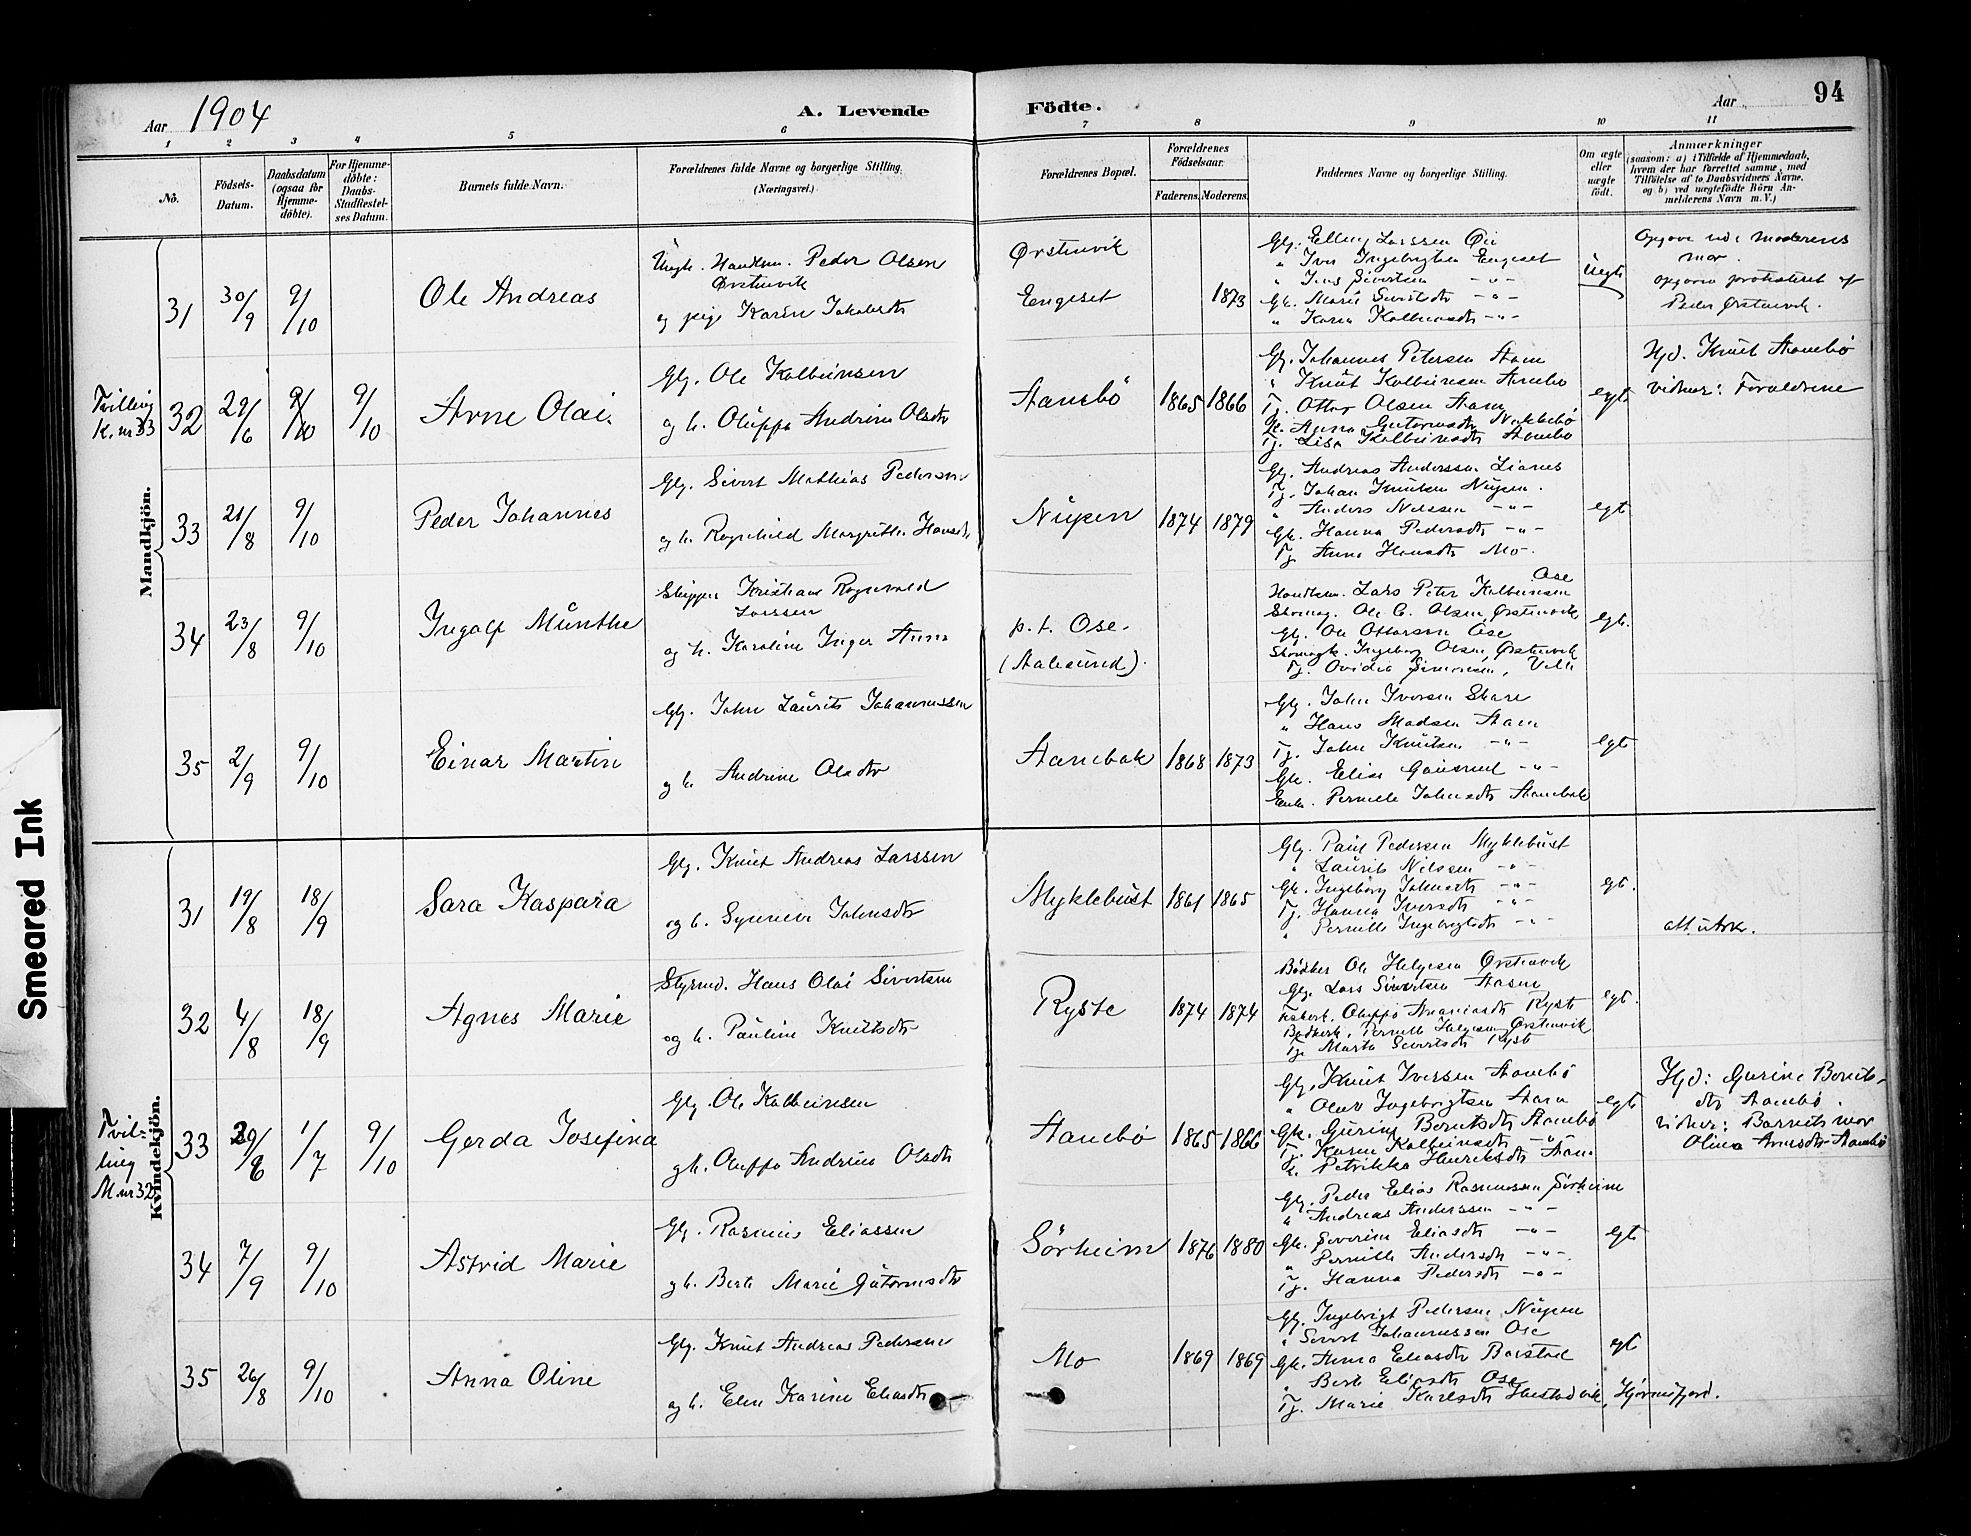 Aar 1904
A. Levende Födte.
Aar
94
1 2 3 4 5 6 7 8 9 10 11
No.
Födsels-Datum.
Daabsdatum (ogsaa for Hjemme-döbte).
For Hjemme-döbte: Daabs-Stadfæstel-ses Datum.
Barnets fulde Navn.
Forældrenes fulde Navne og borgerlige Stilling.
(Næringsvei.)
Forældrenes Bopæl.
Forældrenes Födselsaar.
Faderens. Moderens.
Faddernes Navne og borgerlige Stilling.
Om ægte eller uægte födt.
Anmærkninger
(saasom: a) i Tilfælde af Hjemmedaab,
hvem der har forrettet samme, med
Tilföielse af to Daabsvidners Navne,
og b) ved uægtefödte Börn An-
melderens Navn m. V.)
Mandkjön.
31 30/9 9/10
Ole Andreas
Ungk. Handlsm. Peder Olsen
Ørstenvik
og pige Karen Jakobsdtr
Ørstenvik
Engeset
1873
Iver Ingebrigtsen Engeset
Jens Sivertsen -"-
Gk. Marie Sivertsdtr -"-
" Karen Kolbeinsdtr -"-
uegte
Opgave ved: moderens
mor.
opgaven protesteret af
Peder Ørstenvik.
Tvilling
K. nr 33
32 29/6 9/10 9/10
Arne Olai.
Gbr. Ole Kolbeinsen
og h. Oluffa Andrine Olsdtr
Aamebö
1865 1866
Gbr. Johannes Petersen Aam
" Knut Kolbeinsen Aamebö
Tj. Ottar Olsen Aam
Tj. Lisa Kolbeinsdtr Aamebö
egte
Hjd. Knut Aamebö
vidner: Forældrene
33 21/8 9/10
Peder Johannes
Gbr. Sivert Mathias Pedersen
og h. Ragnhild Margrethe Hansdtr
Nupen
1874 1879
Gbr. Andreas Anderssen Lianes
Tj. Johan Knutsen Nupen.
" Anders Nilssen -"-
Gk. Hanna Pedersdtr -"-
Tj. Anne Hansdtr Mo.
egte
34 23/8 9/10
Ingolf Munthe
Skipper Kristian Ragnvald
Larssen
og h. Karoline Inger Anna
p.t. Ose.
(Aalesund).
Ose
Handlsm. Lars Peter Kolbeinsen
Skomag. Ole C. Olsen, Ørstenvik
Gbr. Ole Ottarsen Ose
Skomagk. Ingeborg Olsen, Ørstenvik
Tj. Ovidia Simonsen,
egte.
35 2/9 9/10
Einar Martin
Gbr. John Laurits Johannessen
og h. Andrine Olsdtr
Aamebak
1868 1873
Gbr. John Iversen Skare
" Hans Madsen Aam
Tj. John Knutsen -"-
Gk. Elise -"-
Enk. Pernille Johnsdtr Aamebak
egte
Kvindekjön.
31 19/8 18/9
Sara Kaspara
Gbr. Knut Andreas Larssen
og h. Synneve Johnsdtr
Myklebust
1861 1865
Gbr. Paul Pedersen Myklebust
" Laurits Nilssen -"-
Gk. Ingeborg Johnsdtr -"-
Tj. Hanna Iversdtr -"-
" Pernille Ingebrigtsdtr -"-
egt.
32 4/8 18/9
Agnes Marie
Styrmd. Hans Olai Sivertsen
og h. Pauline Knutsdtr
Ryste
1874 1874
Bödker Ole Helgesen Ørstenvik
Gbr. Lars Sivertsen Aasen
Bödkerk. Pernille Helgesen Ørstenvik
Tj. Marta Sivertsdtr Ryst
egt.
Tvil-
ling
M. nr 32
33 29/6 1/7 9/10
Gerda Josefina
Gbr. Ole Kolbeinsen
og h. Oluffa Andrine Olsdtr
Aamebö
1865 1866
Gbr. Knut Iversen Aamebö
" Oluv Ingebrigtsen Aam
Gk. Gurine Berntsdtr Aamebö
Tj. Karen Kolbeinsdtr -"-
Petrikka Henriksdtr Aam.
egte
Hjd: Gurine Bernts-
dtr Aamebö.
vidner: Barnets mor
Olina Arnesdtr Aamebö
34 7/9 9/10
Astrid Marie
Gbr. Rasmus Eliassen
og h. Berte Marie Gutormsdtr
Sörheim
1876 1880
Gbr. Peder Elias Rasmussen Sörheim
" Andreas Anderssen -"-
Gk. Severine Eliasdtr -"-
" Pernille Andersdtr -"-
Tj. Hanna Pedersdtr -"-
egte
35 26/8 9/10
Anna Oline
Gbr. Knut Andreas Pedersen
og h. Elen Karine Eliasdtr
Mo
1869 1869
Gbr. Ingebrigt Pedersen Nupen
" Sivert Johannessen Ose
Gk. Anna Eliasdtr Barstad
" Berte Eliasdtr Ose
Tj. Marie Karlsdtr Hustadvik, Hjörundfjord.
egte
Smeared Ink